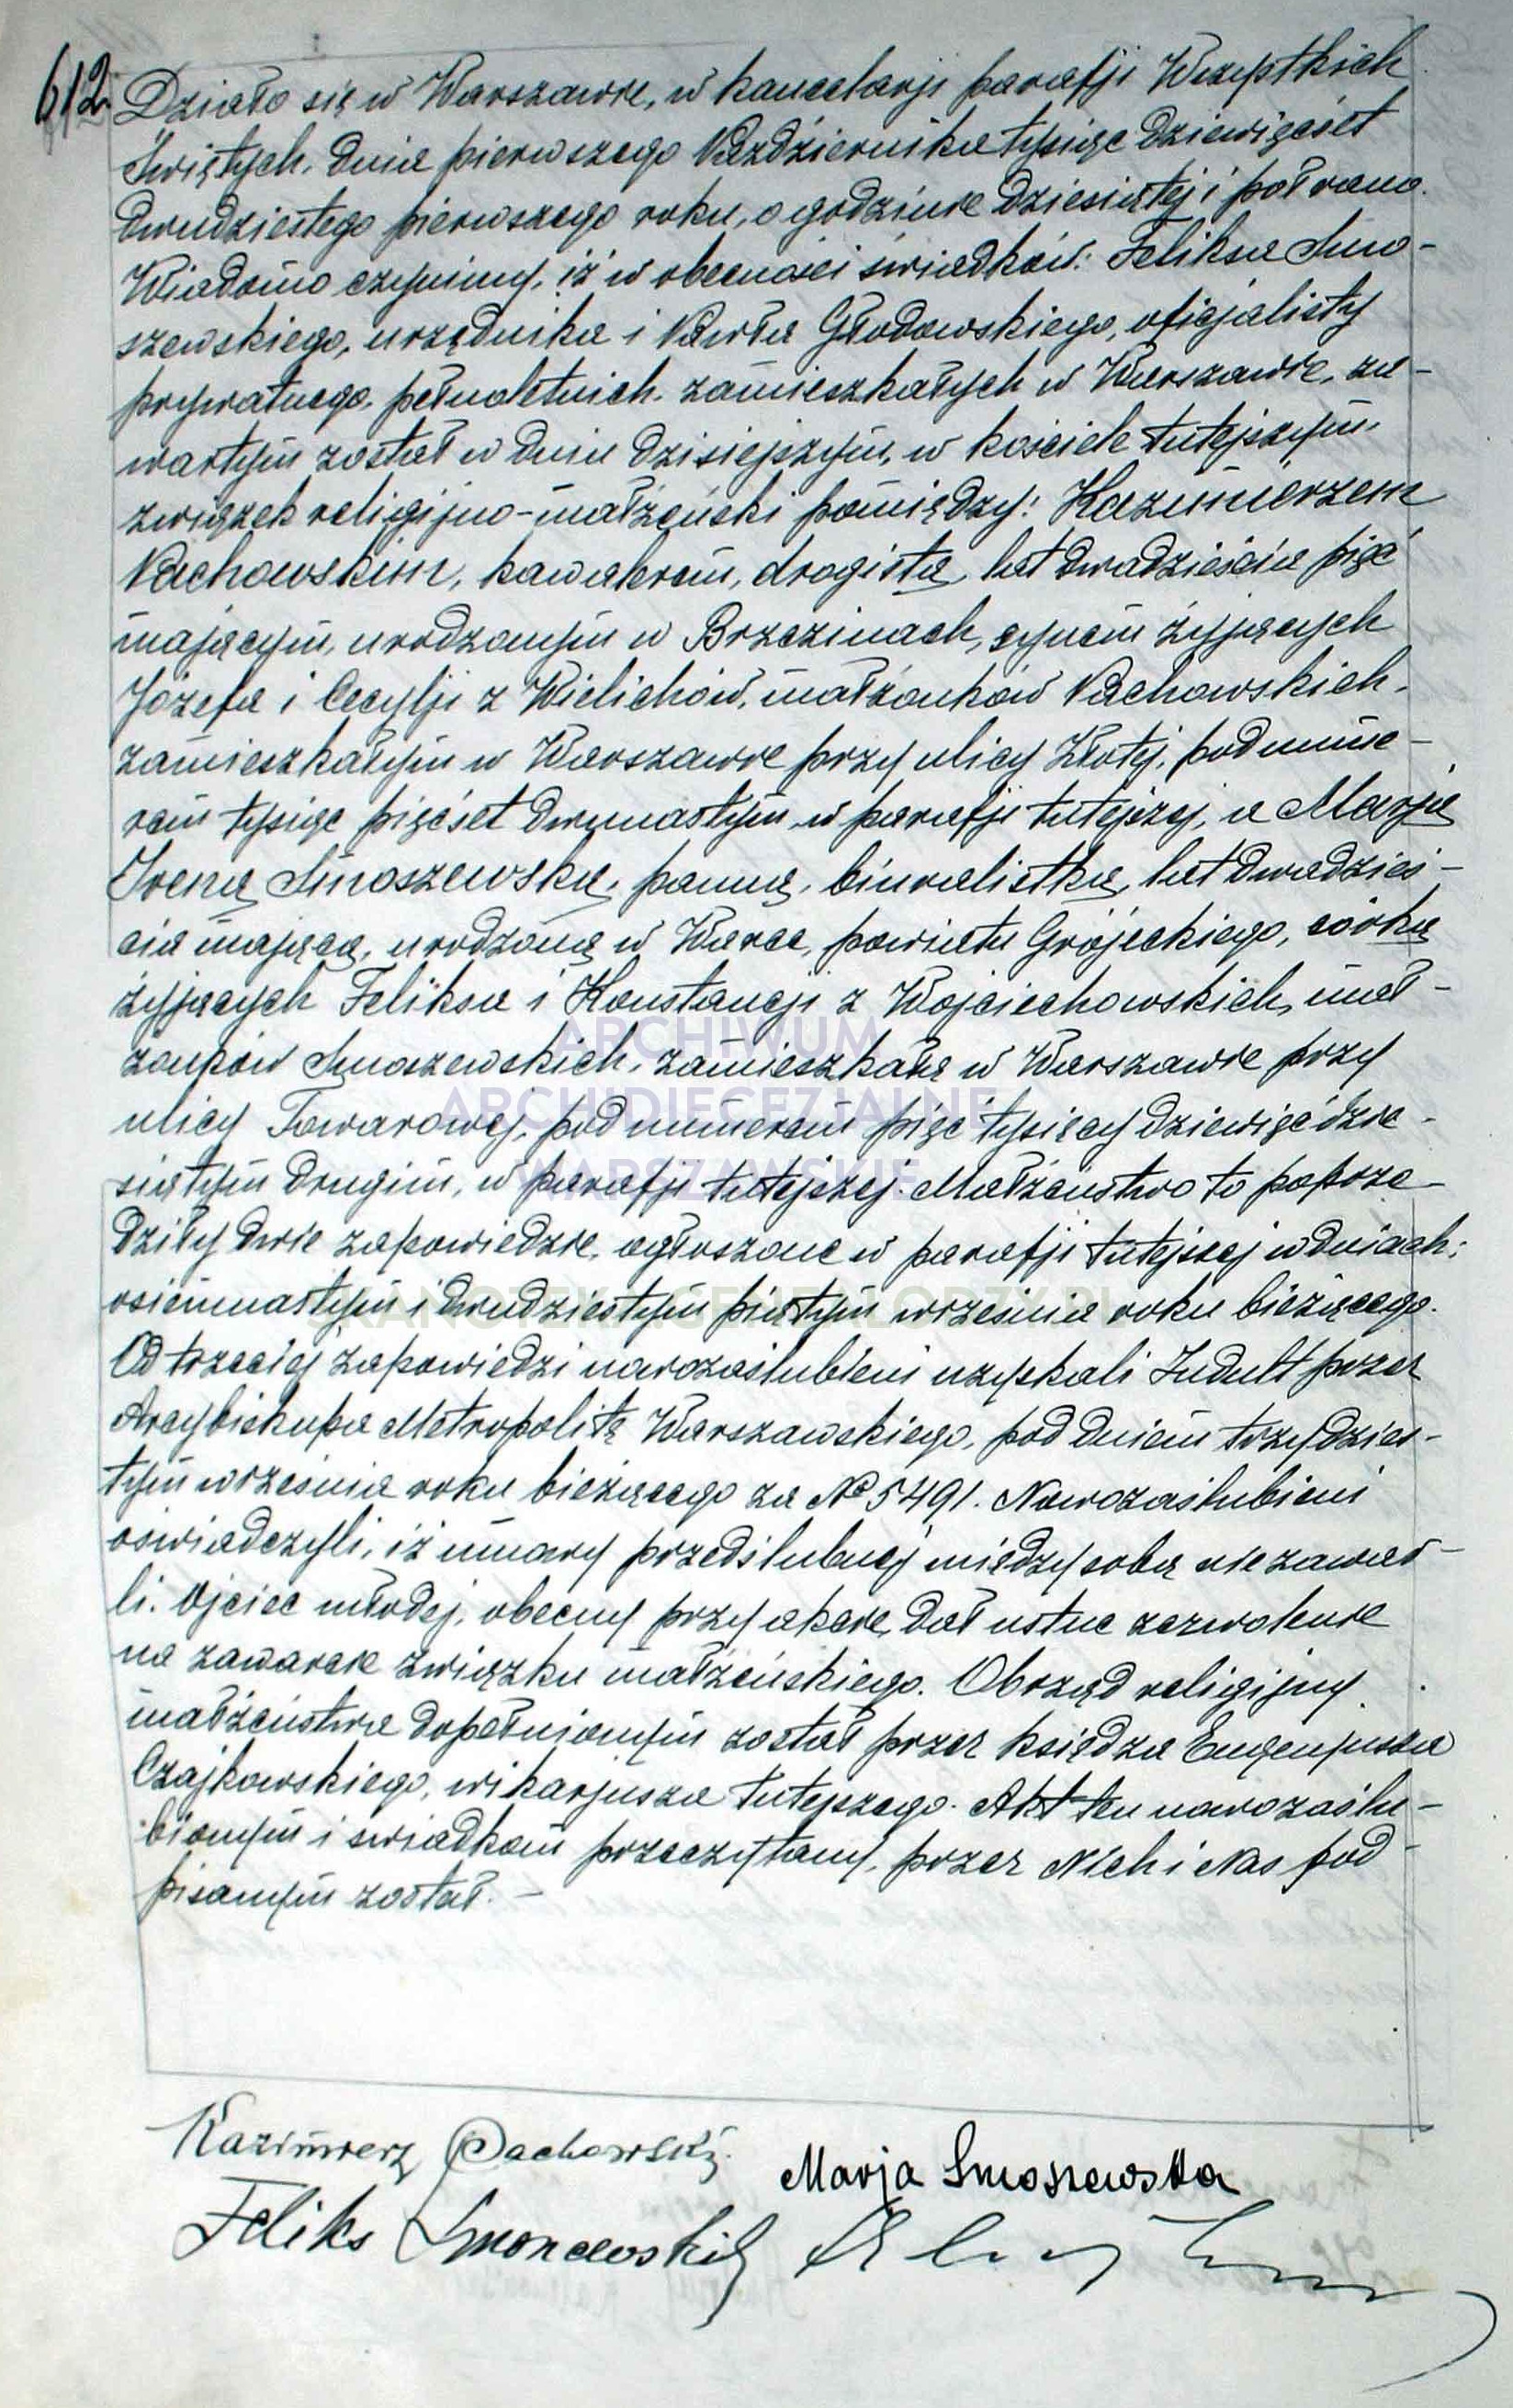 612.
Działo się w Warszawie, w kancelarji parafji Wszystkich
Świętych, dnia pierwszego Października tysiąc dziewięćset
dwudziestego pierwszego roku, o godzinie dziesiątej i pół rano.
Wiadomo czynimy, iż w obecności świadków: Feliksa Smo-
szewskiego, urzędnika i Pawła Głodowskiego, oficjalisty
prywatnego, pełnoletnich, zamieszkałych w Warszawie, za-
wartym został w dniu dzisiejszym, w kościele tutejszym,
związek religijno-małżeński pomiędzy: Kazimierzem
Pachowskim, kawalerem, drogistą, lat dwadzieścia pięć
mającym, urodzonym w Brzezinach, synem żyjących
Józefa i Cecylji z Wielichów, małżonków Pachowskich,
zamieszkałym w Warszawie przy ulicy Złotej, pod nume-
rem tysiąc pięćset dwunastym, w parafji tutejszej, a Marją
Ireną Smoszewską, panną, biuralistką, lat dwadzieś-
cia mającą, urodzoną w Warce, powiatu Grójeckiego, córką
żyjących Feliksa i Konstancji z Wojciechowskich, mał-
żonków Smoszewskich, zamieszkałą w Warszawie przy
ulicy Towarowej, pod numerem pięć tysięcy dziewięćdzie-
siątym drugim, w parafji tutejszej. Małżeństwo to poprze-
dziły dwie zapowiedzie, ogłoszone w parafji tutejszej w dniach:
osiemnastym i dwudziestym piątym września roku bieżącego.
Od trzeciej zapowiedzi nowozaślubieni uzyskali Indult przez
Arcybiskupa Metropolitę Warszawskiego, pod dniem trzydzies-
tym września roku bieżącego za № 5491. Nowozaślubieni
oświadczyli, iż umowy przedślubnej między sobą nie zawar-
li. Ojciec młodej, obecny przy akcie, dał ustne zezwolenie
na zawarcie związku małżeńskiego. Obrząd religijny
małżeństwa dopełnionym został przez księdza Eugenjusza
Czajkowskiego, wikarjusza tutejszego. Akt ten nowozaślu-
bionym i świadkom przeczytany, przez Nich i Nas pod-
pisanym został. —
Kazimierz Pachowski.
Marja Smoszewska
Feliks Smoszewski
ARCHIWUM
ARCHIDIECEZJALNE
WARSZAWSKIE
SKANOTEKA.GENEALODZY.PL